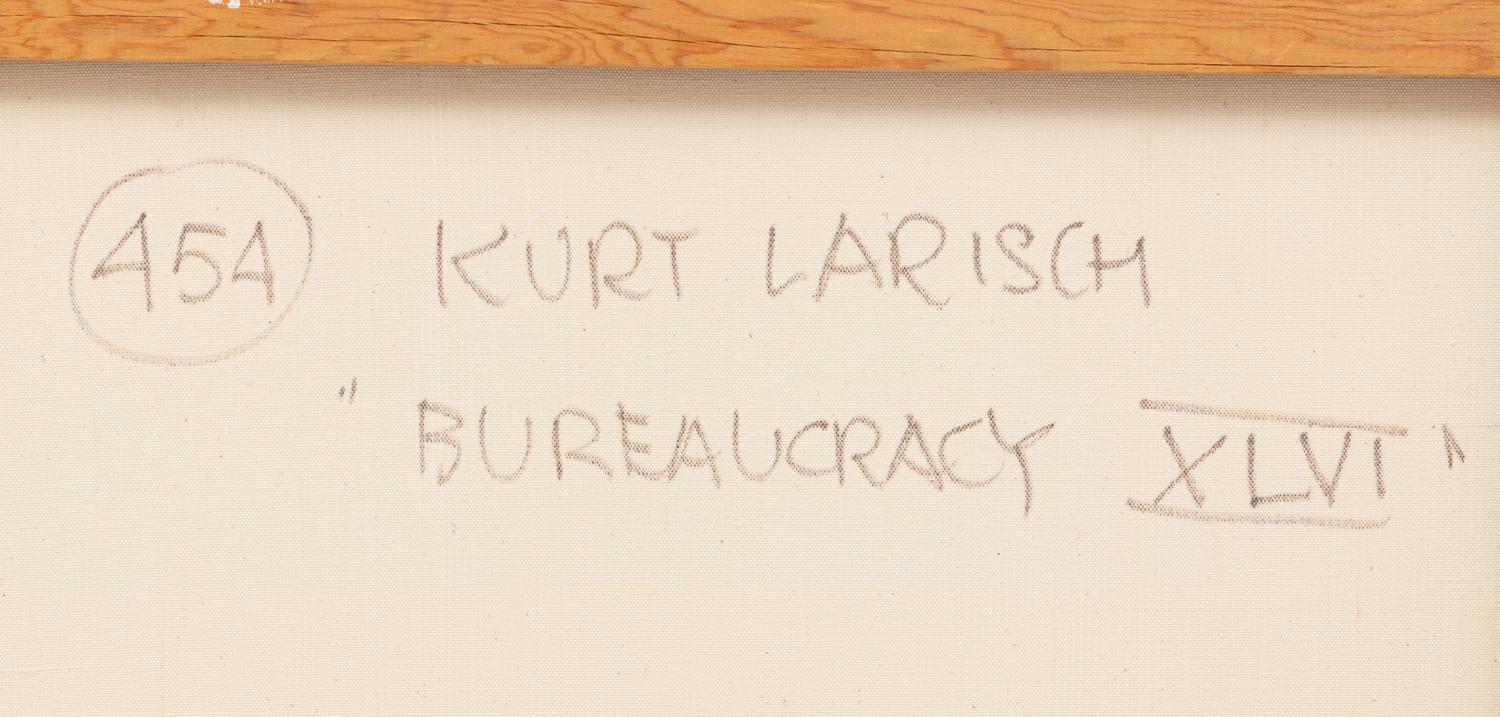 454 KURT LARISCH
"BUREAUCRACY XLVI"